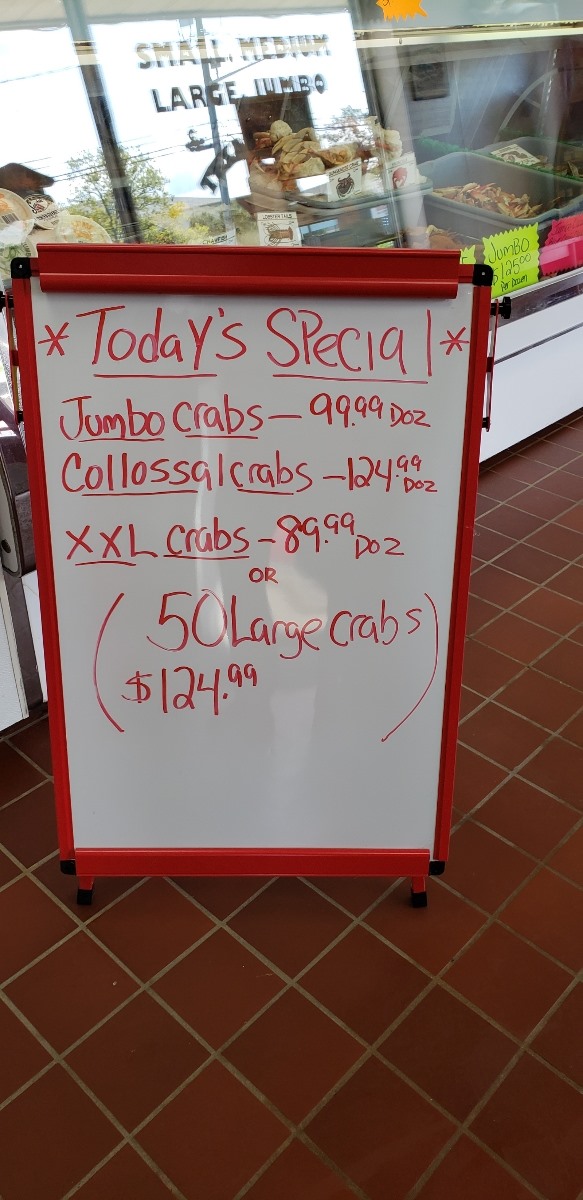 SMALL, MEDIUM
LARGE, JUMBO
&
JUMBO
$125.00
Per Dozen
* Today's Special *
Jumbo Crabs - 99.99 Doz
Collossal crabs - 124.99 Doz
XXL crabs - 89.99 Doz
OR
( 50 Large crabs )
$124.99